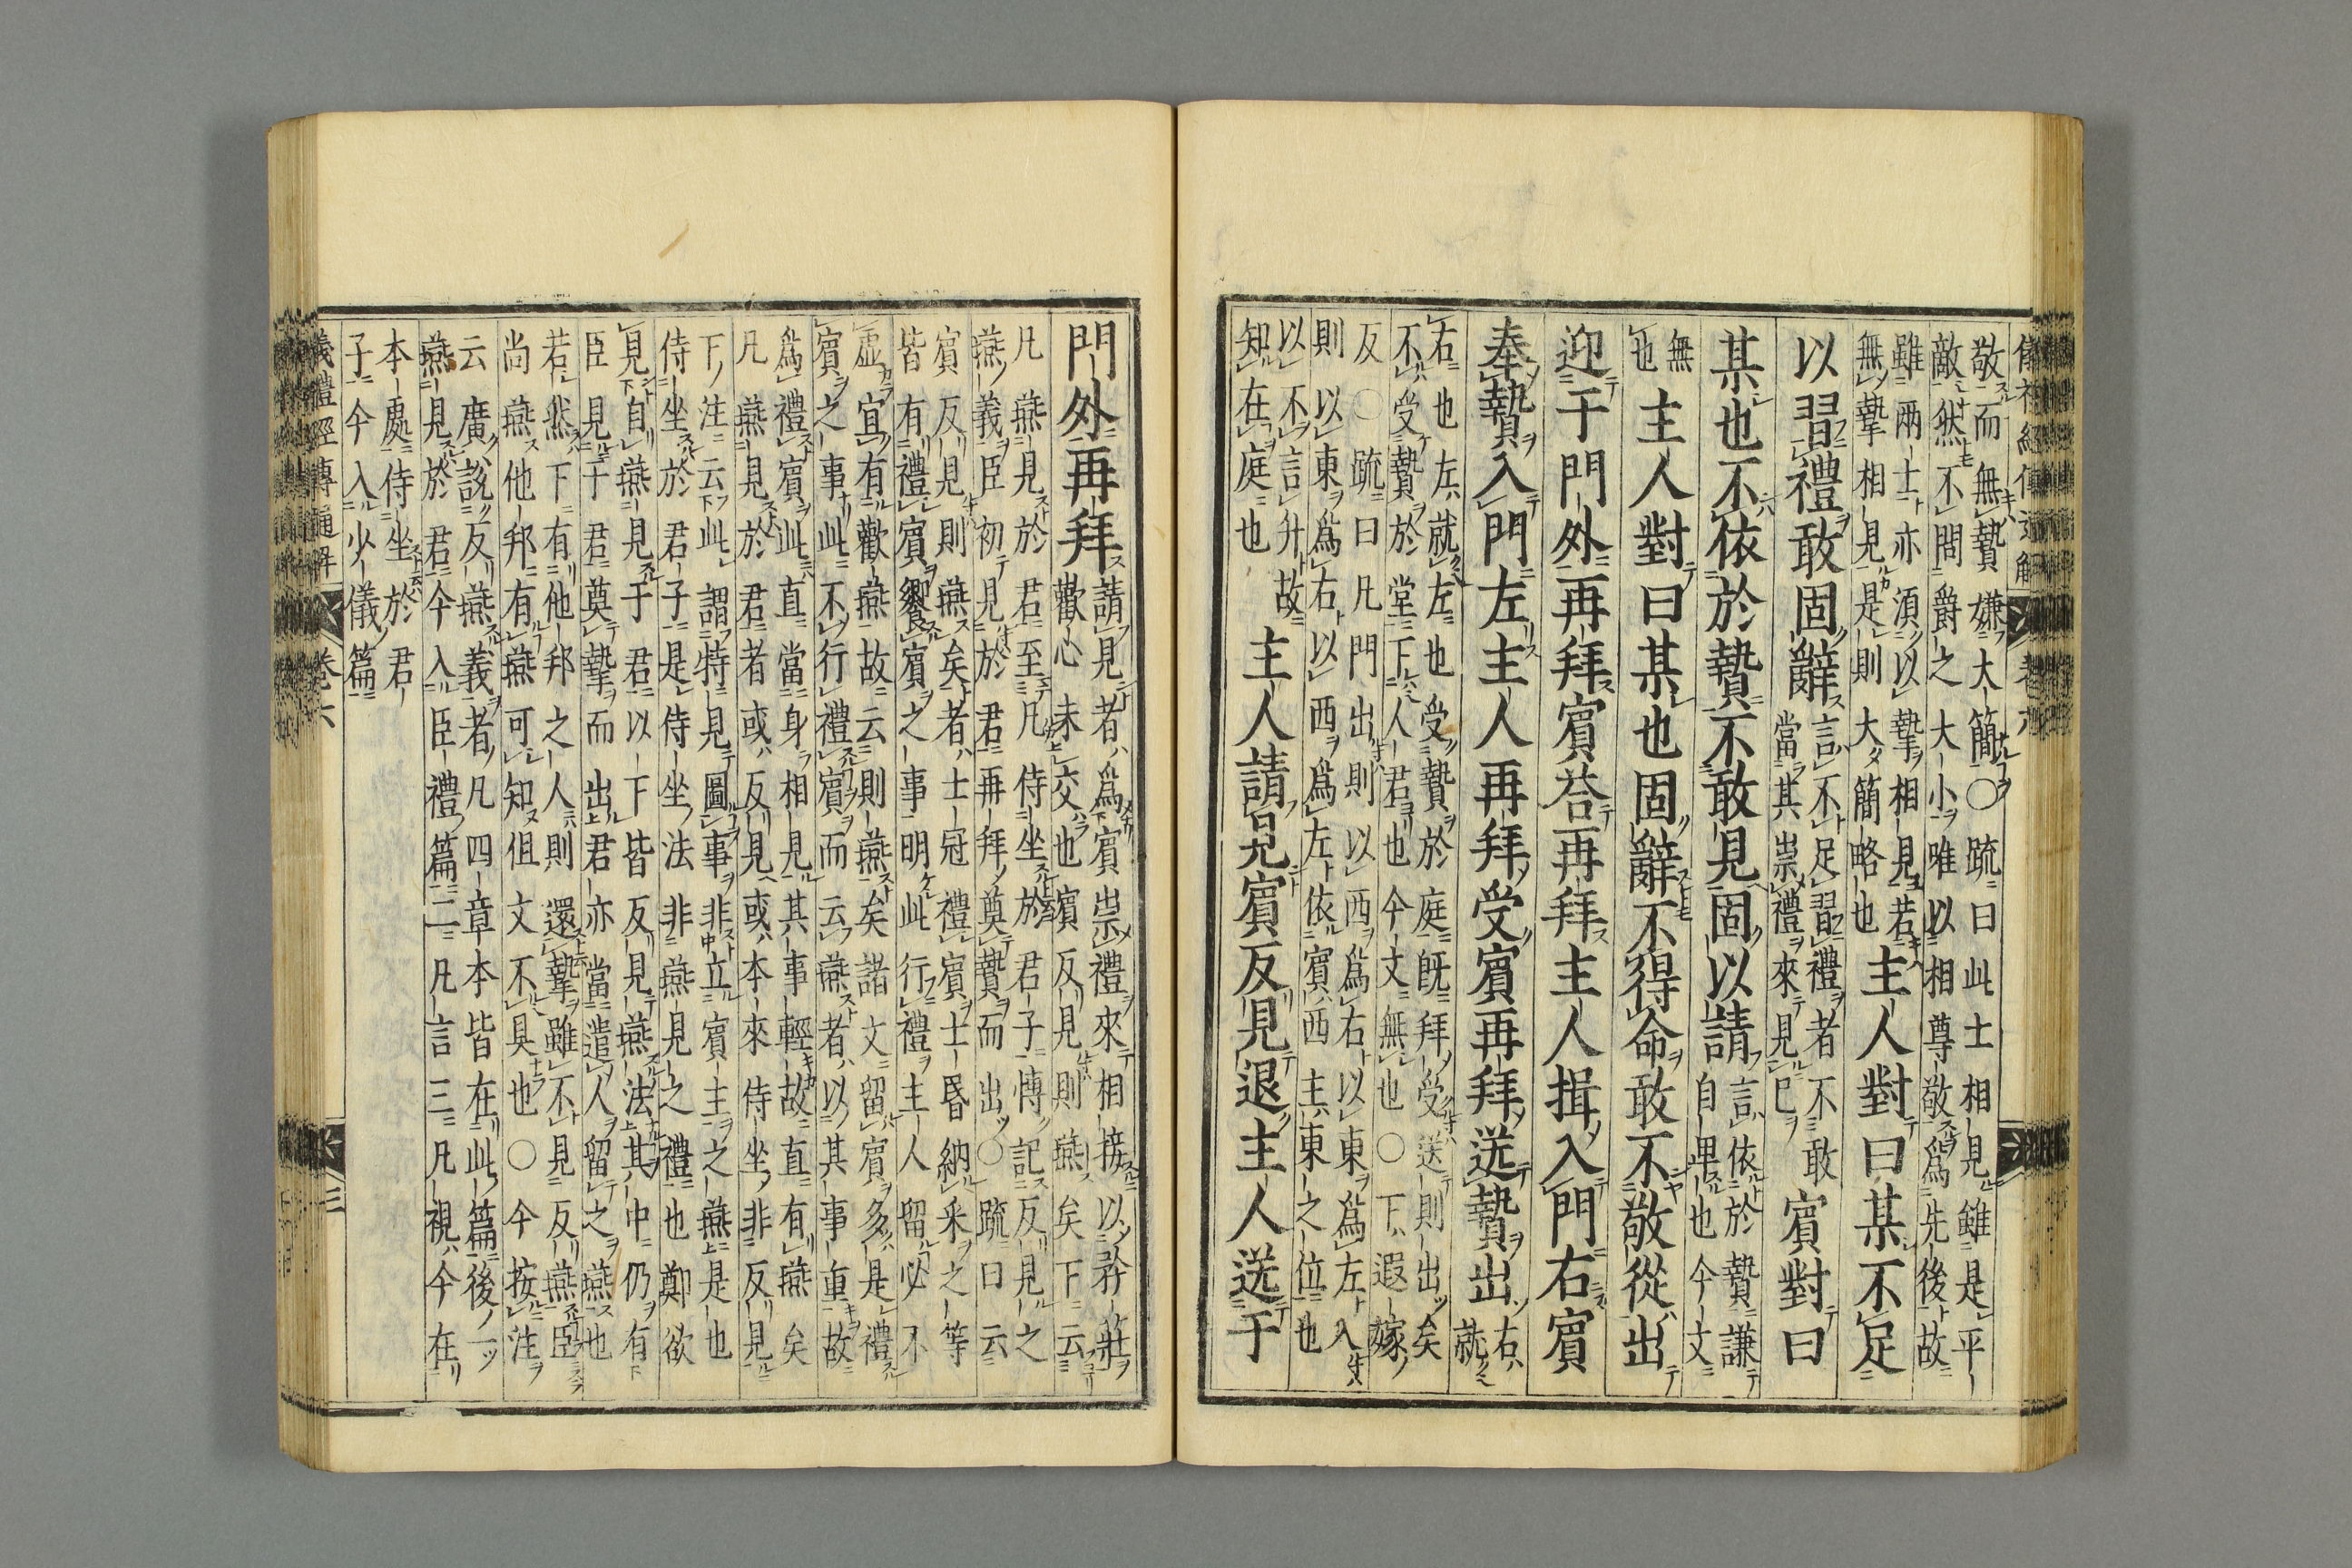 敬而無贄嫌大簡○疏曰此士相見雖是平
敵然不問爵之大小唯以相尊敬爲先後故
雖兩士亦須以摯相見若
無摯相見是則大簡略也
主人對曰某不足
以習禮敢固辭
言不足習禮者不敢
當其崇禮來見已
賓對曰
某也不依於贄不敢見固以請
言依於贄謙
自卑也今文
無
也
主人對曰某也固辭不得命敢不敬從出
迎于門外再拜賓荅再拜主人揖入門右賓
奉贄入門左主人再拜受賓再拜送贄出
右
就
右也左就左也受贄於庭既拜受送則出矣
不受贄於堂下人君也今文無也○下遐嫁
反○疏曰凡門出則以西爲右以東爲左入
則以東爲右以西爲左依賓西主東之位也
以不言升故
知在庭也
主人請見賓反見退主人送于
門外再拜
請見者爲賓崇禮來相接以矜莊
歡心未交也賓反見則燕矣下云
凡燕見於君至凡侍坐於君子博記反見之
燕義臣初見於君再拜奠贄而出○疏曰云
賓反見則燕矣者士冠禮賓士昏納采之等
皆有禮賓饗賓之事明此行禮主人留必不
虛宜有歡燕故云則燕矣諸文留賓多是禮
賓之事此不行禮賓而云燕者以其事重故
爲禮賓此直當身相見其事輕故直有燕矣
凡燕見於君者或反見或本來侍坐非反見
下注云此謂特見圖事非立賓主之燕是也
侍坐於君子是侍坐法非燕見之禮也鄭欲
見自燕見于君以下皆反見燕法其中仍有
臣見于君奠摯而出君亦當遣人留之燕也
若然下有他邦之人則還摯雖不見反燕臣
尚燕他邦有燕可知但文不具也○今按注
云廣說反燕義者凡四章本皆在此篇後一
燕見於君今入臣禮篇二凡言三凡視今在
本處侍坐於君
子今入少儀篇
儀禮經傳通解 卷六 三